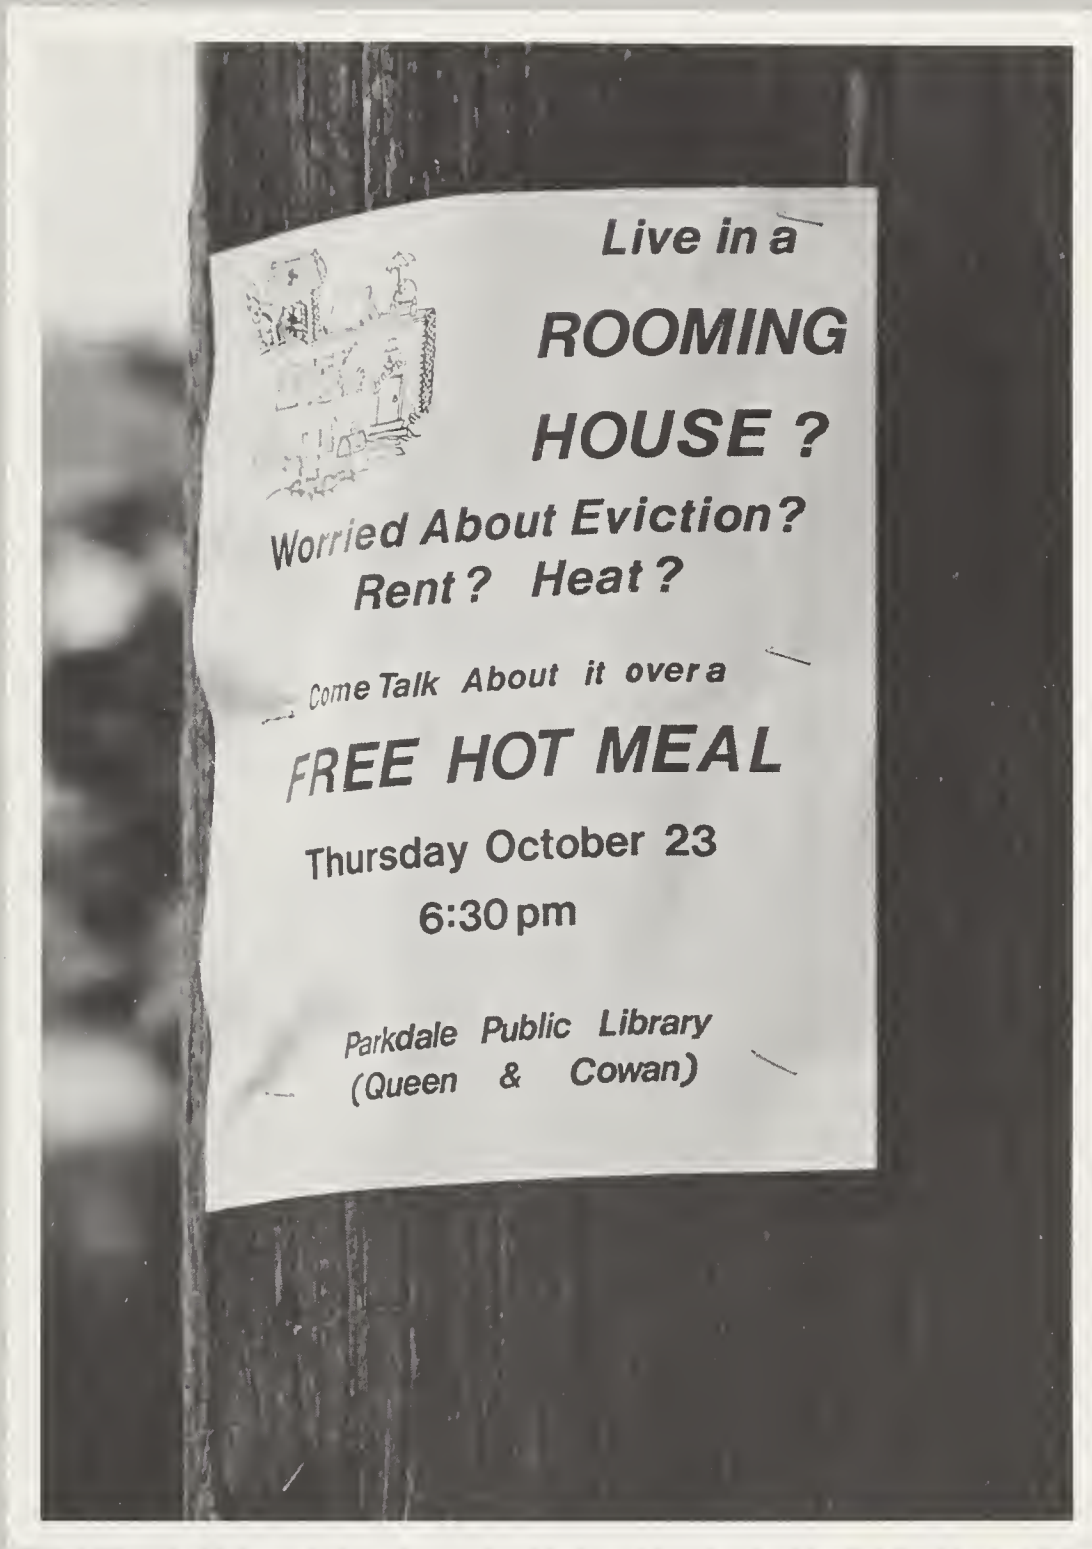 Live in a
ROOMING
HOUSE ?
Worried About Eviction?
Rent ? Heat ?
Come Talk About it over a
FREE HOT MEAL
Thursday October 23
6:30 pm
Parkdale Public Library
(Queen & Cowan)